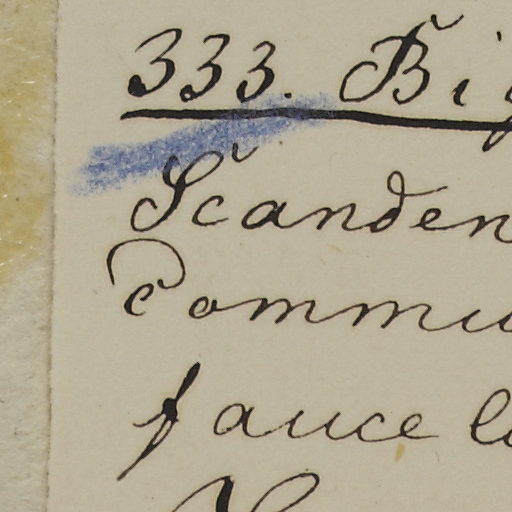 333. Big
Scanden
Commu
fauce l